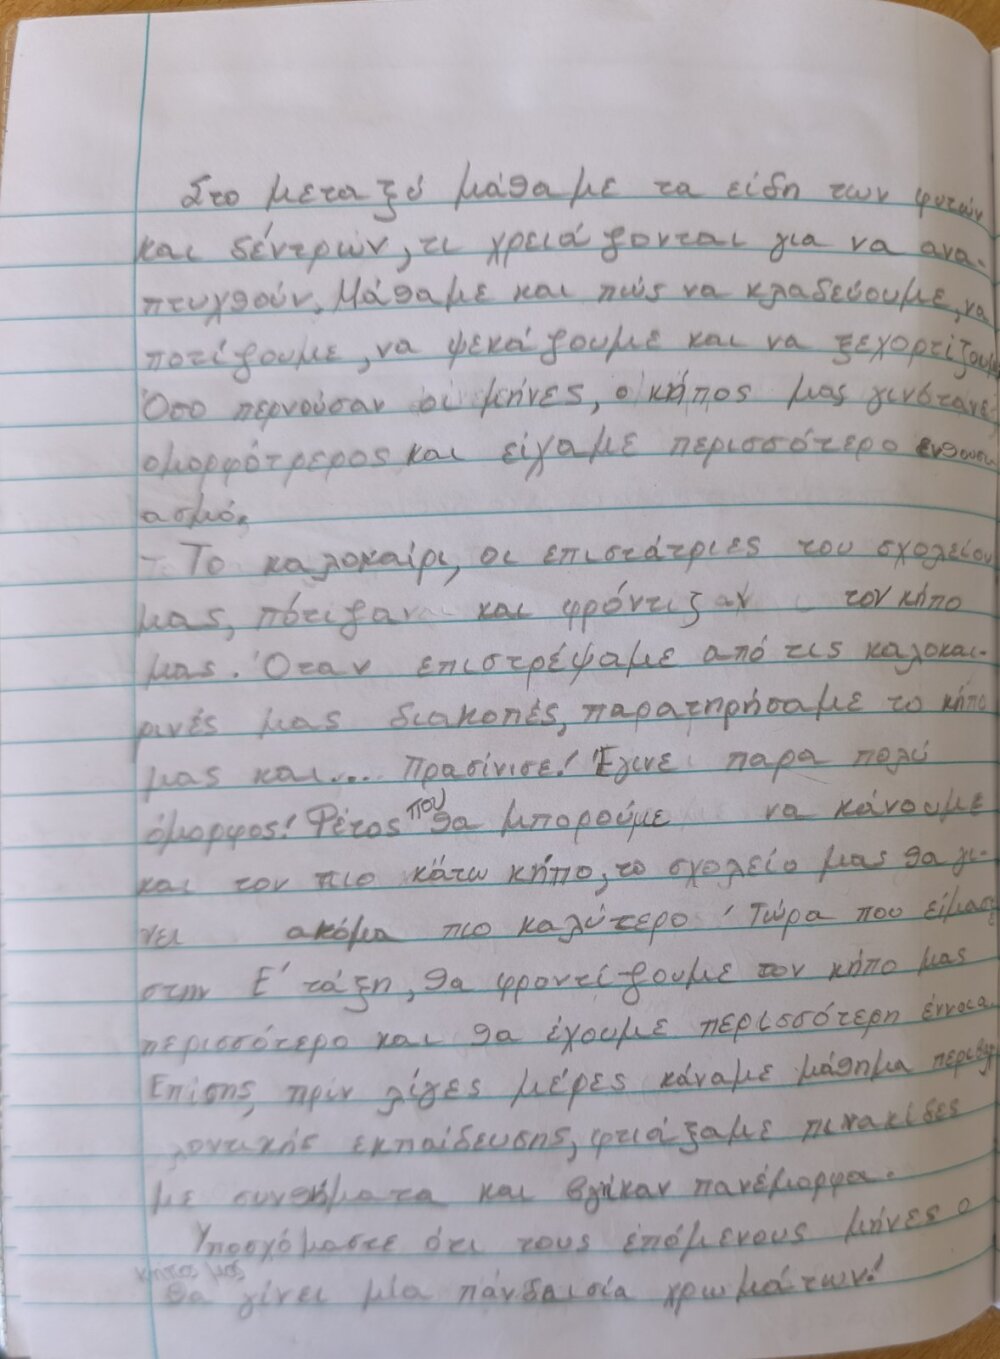 Στο μεταξύ μάθαμε τα είδη των φυτών
και δέντρων, τι χρειάζονται για να ανα-
πτυχθούν. Μάθαμε και πώς να κλαδεύουμε, να
ποτίζουμε, να ψεκάζουμε και να ξεχορτίζουμε
Όσο περνούσαν οι μήνες, ο κήπος μας γινότανε
ομορφότρερος και είχαμε περισσότερο ενθουσι
ασμό.
- Το καλοκαίρι, οι επιστάτριες του σχολείου
μας, πότιζαν και φρόντιζαν τον κήπο
μας. Όταν επιστρέψαμε από τις καλοκαι-
ρινές μας διακοπές, παρατηρήσαμε το κήπο
μας και.... Πρασίνισε! Έγινε παρα πολύ
όμορφος! Φέτος που θα μπορούμε να κάνουμε
και τον πιο κάτω κήπο, το σχολείο μας θα γι-
νει ακόμα πιο καλύτερο! Τώρα που είμαστε
στην Ε' τάξη, θα φροντίζουμε τον κήπο μας
περισσότερο και θα έχουμε περισσότερη έννοια.
Επίσης, πριν λίγες μέρες κάναμε μάθημα περιβαλ
λοντικής εκπαίδευσης, φτιάξαμε πινακίδες
με συνθήματα και βγήκαν πανέμορφα.
Υποσχόμαστε ότι τους επόμενους μήνες ο
κήπος μας
θα γίνει μία πανδαισία χρωμάτων!